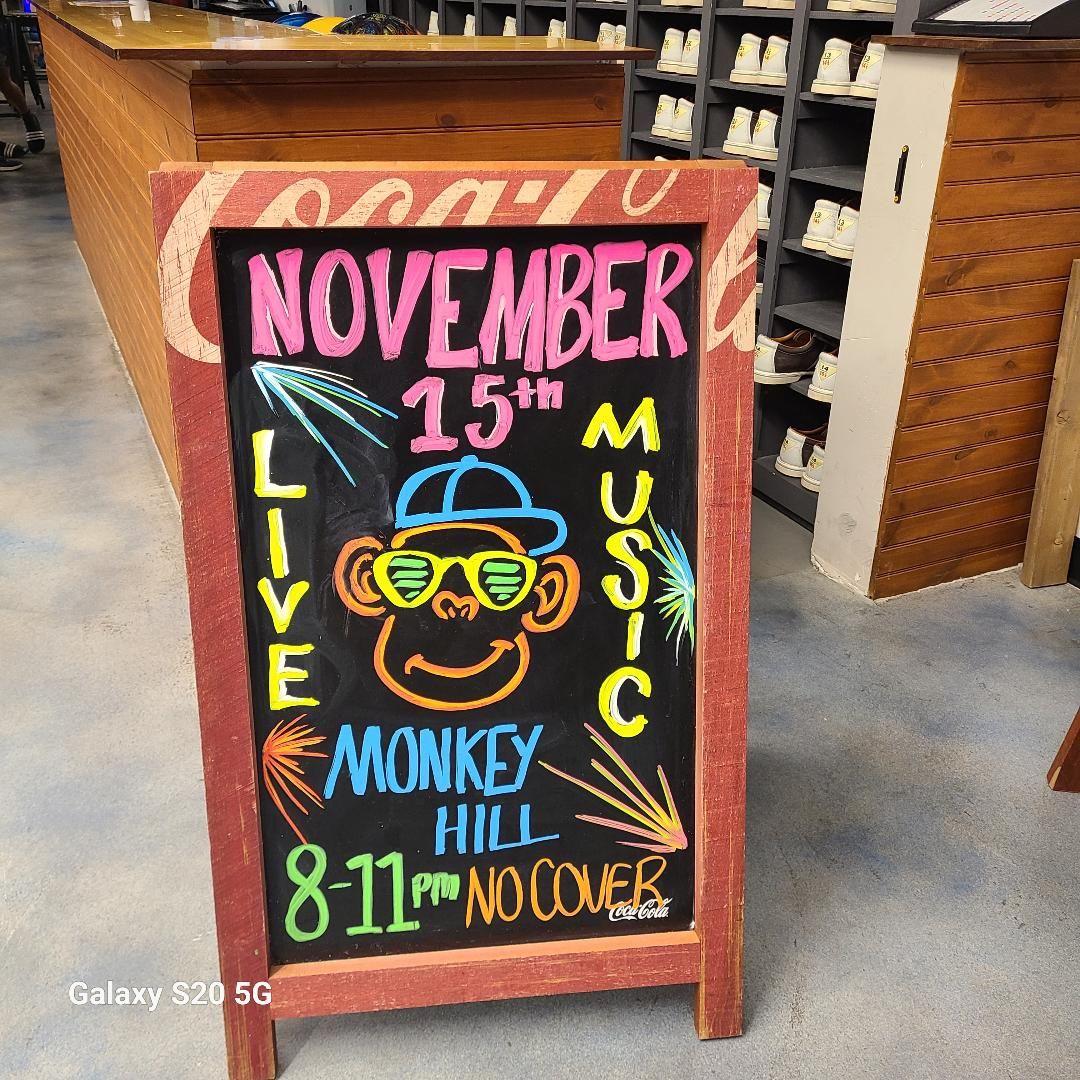 Coca-Co
NOVEMBER
15th
LIVE
MUSIC
MONKEY
HILL
8-11pm NO COVER
Coca-Cola
Galaxy S20 5G